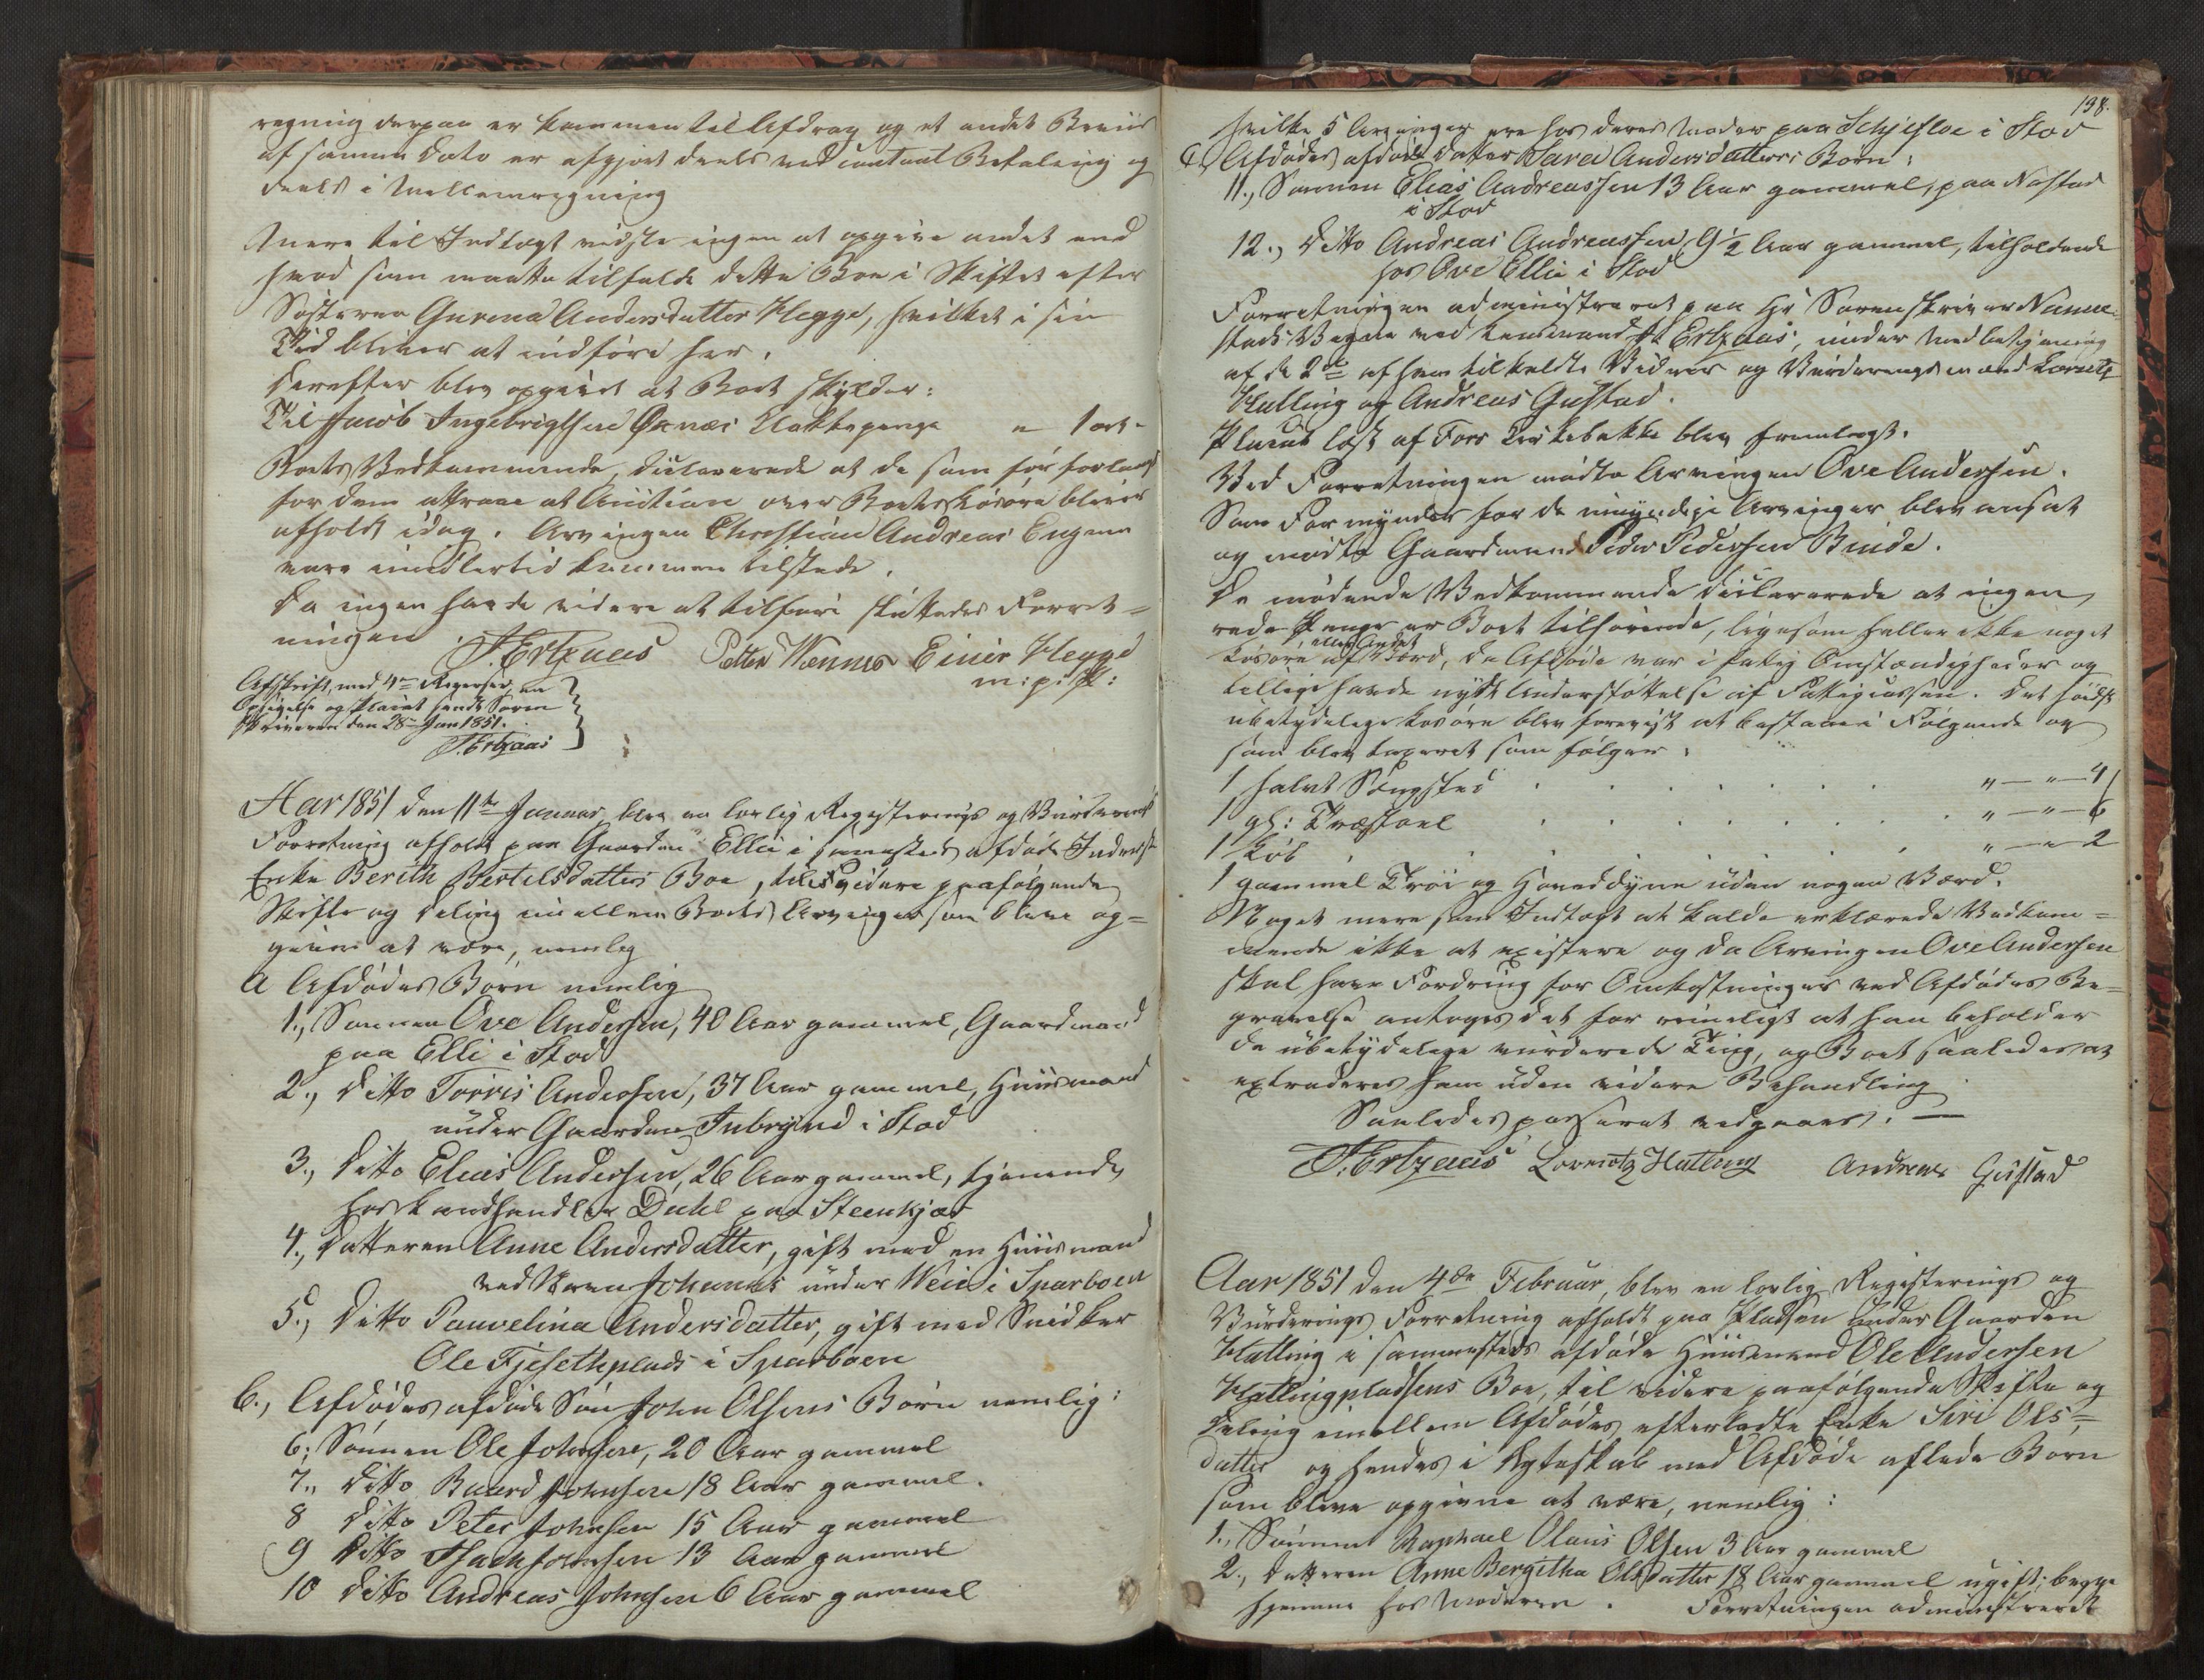 regning derpaa er kommen til Afdrag og et andet Beviis
af samme Dato er afgjort deels ved contant Betaling og
deels i Mellemregning
Mere til Indtægt vidste ingen at opgive andet end
hvad som maatte tilfalde dette Boe i Skiftet efter
Søsteren Gurena Andersdatter Hegge, hvilket i sin
Tid bliver at indføre her.
Derefter blev opgivet at Boet skylder:
Til Jacob Ingebrigtsen Øxnæs Uattepenge " 1 ort -
Boets Vedkommende, declarerede at de som før forlangt
for dem attraae at Auction over Boets Løsøre bliver
afholdt idag. Arvingen Christian Andreas Eugene
vare imidlertid kommen tilstede.
Da ingen havde videre at tilføre sluttedes Forret=
ningen J. Ertzaas Petter Wennes Einer Hegge
m: p: P:
Afskrift, med 4 Reverser, en
Opsigelse og Placat sendt Soren
skriveren den 28de Jan 1851.
J. Ertzaas
Aar 1851 den 11te Januar blev en lovlig Registerings og Vurderings
Forretning afholdt paa Gaarden Ellie i sammesteds afdøde Inderste
Enke Berith Bertelsdatters Boe, til videre paafølgende
Skifte og Deling imellem Boets Arvinger som bleve op=
given at være, nemlig
A Afdødes Børn nemlig
1., Sønnen Ove Andersen, 40 Aar gammel, Gaardmand
paa Elli i Stod
2., Ditto Torris Andersen, 37 Aar gammel, Huusmand
under Gaarden Inbryned i Stod
3., Ditto Elias Andersen, 26 Aar gammel, tjenende
hos Landhandler Dahl paa Steenkjær
4., Datteren Anne Andersdatter, gift med en Huusmand
ved Navn Johannes under Weie i Sparboen
5., Ditto Pauvelina Andersdatter, gift med Snidker
Ole Fjesethplads i Sparboen
B., Afdødes afdøde Søn John Olsens Børn nemlig:
6; Sønnen Ole Johnsen, 20 Aar gammel
7., Ditto Baard Johnsen 18 Aar gammel.
8 Ditto Peter Johnsen 15 Aar gammel
9 Ditto Isach Johnsen 13 Aar gammel
10 Ditto Andreas Johnsen 6 Aar gammel
198.
Hvilke 5 Arvinger ere hos deres Moder paa Schjefloe i Stod
C, Afdødes afdøde Datter Sara Andersdatters Børn:
11., Sønnen Elias Andreassen 13 Aar gammel, paa Nøstad
i Stod
12., Ditto Andreas Andreassen, 9 1/2 Aar gammel, tilholdende
hos Ove Ellie i Stod
Forretningen administreret paa Hr Sorenskriver Numme
stads Vegne ved Lensmand J Ertzaas, under Medbetjening
af de 2de af ham tilkaldte Vidner og Vurderingsmænd Lorents
Halling og Andreas Gustad.
Placat læst af For Kirkebakke blev fremlagt.
Ved Forretningen mødte Arvingen Ove Andersen.
Som Formynder for de umyndige Arvinger blev ansat
og mødte Gaardmand Peder Pedersen Binde.
De mødende Vedkommende declarerede at ingen
rede Penge er Boet tilhørende, ligesom heller ikke noget
eller Andet
Løsøre af Værd, da Afdøde var i fattig Omstændigheder og
tillige havde nydt Understøttelse af Fattigcassen. Det høist
ubetydelige Løsøre blev foreviist at bestaae i Følgende og
som blev taxeret som følger:
1 halvt Sengsted . . . . . . " — " — 4
1 gl: Træstoel . . . . . . " — " — 6
1 Løb . . . . . . " — " 2
1 gammel Trøi og Hoveddyne uden nogen Værd.
Noget mere som Indtægt at kalde erklærede Vedkom=
mende ikke at existere og da Arvingen Ove Andersen
skal have Fordring for Omkostninger ved Afdødes Be=
gravelse antoges det for rimeligt at han beholder
de ubetydelige vurderede Ting, og Boet saaledes at
extraderes ham uden videre Behandling
Saaledes passeret vedgaaes. —
J. Ertzaas Lorentz Hatling Andreas Gustad
Aar 1851 den 4de Februar, blev en lovlig Registerings og
Vurderings Forretning afholdt paa Pladsen under Gaarden
Hatling i sammesteds afdøde Huusmand Ole Andersen
Hatlingpladsens Boe, til videre paafølgende Skifte og
Deling imellem Afdødes efterladte Enke Siri Ols=
datter og hendes i Ægteskab med Afdøde aflede Børn
som bleve opgivne at være, nemlig:
1., Sønnen Raphael Olaus Olsen 3 Aar gammel
2., Datteren Anne Bergitha Olsdatter 18 Aar gammel ugift; begge
hjemme hos Moderen. Forretningen administreret